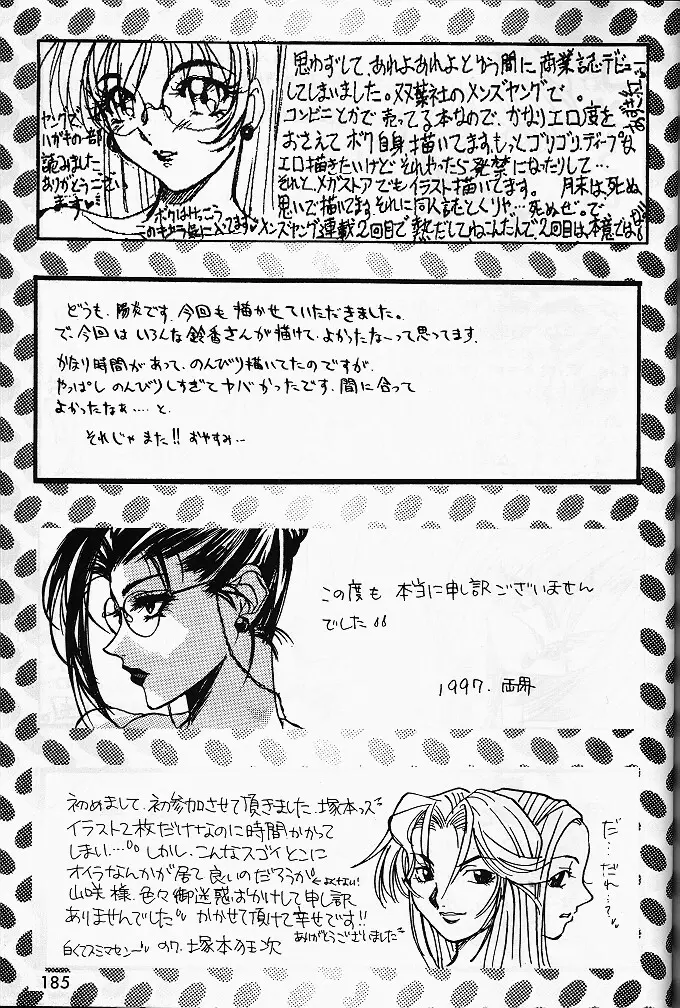 思わずして、あれよあれよという間に商業誌デビュー
してしまいました。双葉社のメンズヤングで。
コンビニとかで売ってる本なので、かなりエロ度を
おさえてボク自身描いてます。もっとゴリゴリディープな
エロ描きたいけど、それやったら発禁になったりして…
それと、メガストアでもイラスト描いてます。 月末は、死ぬ
思いで描いてます、それに同人誌とくりゃ…死ぬぜ。で
メンズヤング連載2回目で熱だしてねこんだんで、2回目は、本意では
ヤングで、
ハガキの一部
読みました、
ありがとうござい
ます
ボクはけっこう
このキャラ気に入ってます
どうも、陽炎です。今回も描かせていただきました。
で、今回はいろんな鈴香さんが描けて、よかったなーって思ってます。
かなり時間があって、のんびり描いてたのですが、
やっぱし のんびりしすぎてヤバかったです、間に合って
よかったなぁ…‥と、
それじゃ また!! おやすみ…
この度も 本当に申し訳ございません
でした
1997. 両界
初めまして、初参加させて頂きました、塚本っス
イラスト2枚だけなのに時間かかって
しまい… しかし、こんなスゴイとこに
オイラなんかが居て良いのだろうか ←よくない!
山咲様、色々御迷惑おかけして申し訳
ありませんでした かかせて頂けて幸せです!!
ありがとうございました
白くてスミマセン
塚本
次
だ…
だれ…?
185